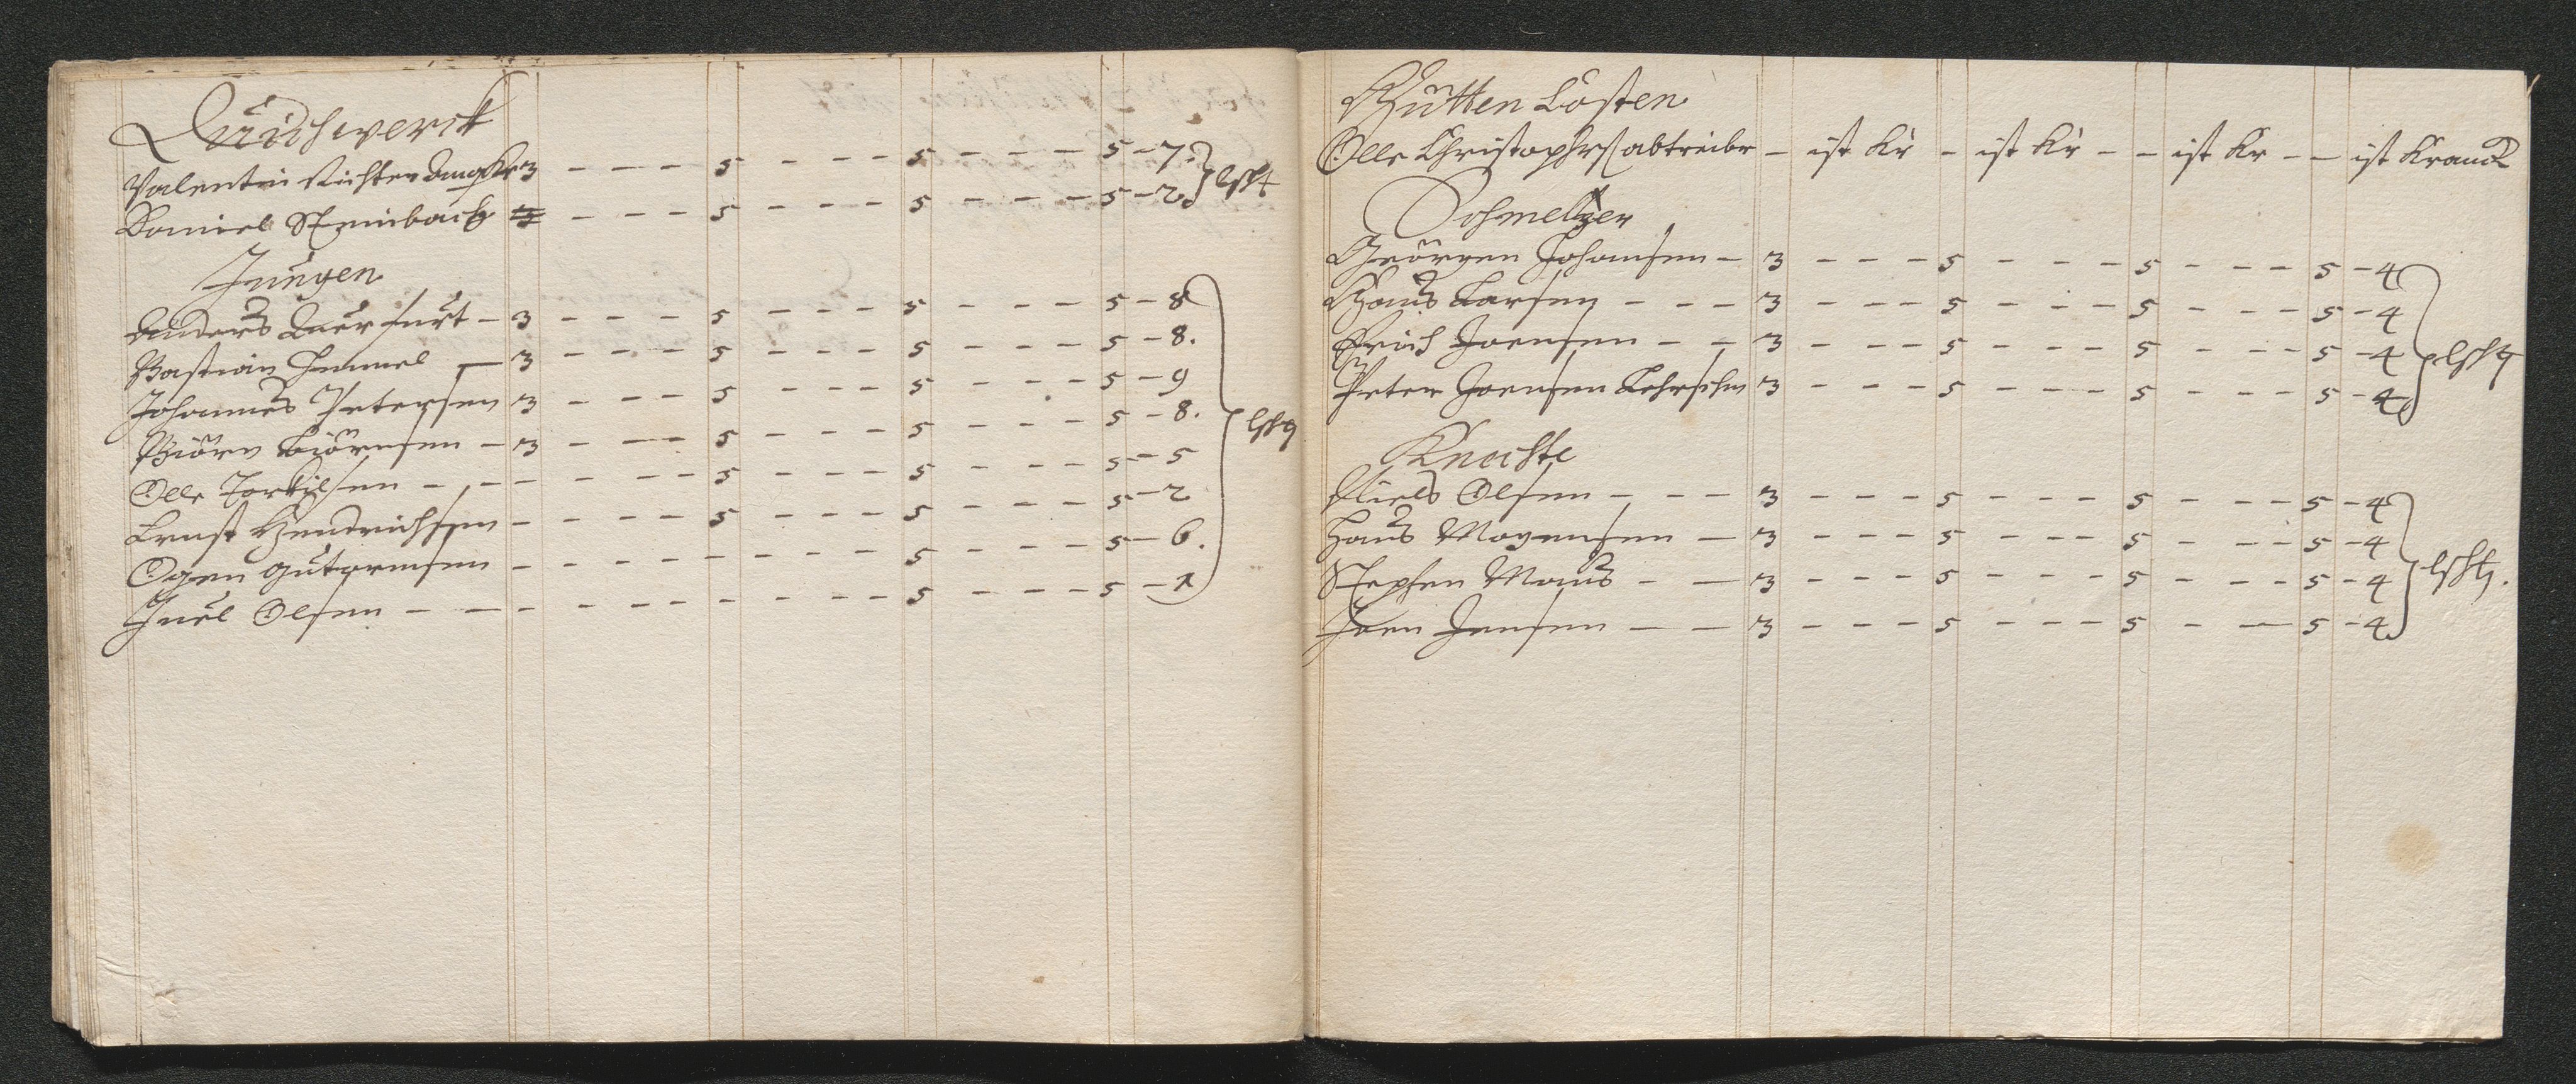 Quichwerck
Valentin Richter 3 - - - 5 - - - 5 - - - 5 - 7.
Daniel Steinbach 3 - - - 5 - - - 5 - - - 5 - 2
Jungen
Anders Querfurt - 3 - - - 5 - - - 5 - - - 5 - 8
Bastian Himmel - 3 - - - 5 - - - 5 - - - 5 - 8.
Johannes Petersen 3 - - - 5 - - - 5 - - - 5 - 9
Biörn Biörnsen - 3 - - - 5 - - - 5 - - - 5 - 8.
Olle Torkilsen - - - - - - 5 - - - 5 - - - 5 - 5
Ernst Hendrichsen - - - - - 5 - - - 5 - - - 5 - 2
Ogen Gutormsen - - - - - - - - - 5 - - - 5 - 6.
Juel Olsen - - - - - - - - - - - 5 - - - 5 - 1
Hütten Costen
Olle Christophers abtreiber - ist Kr - ist Kr - - ist Kr - - ist Kranck
Schmeltzer
Georgen Johansen - 3 - - - 5 - - - 5 - - - 5 - 4
Hans Larsen - - - 3 - - - 5 - - - 5 - - - 5 - 4
Erich Joensen - - 3 - - - 5 - - - 5 - - - 5 - 4
Peter Joensen 3 - - - 5 - - - 5 - - - 5 - 4
Knechte
Niels Olsen - - - 3 - - - 5 - - - 5 - - - 5 - 4
Hans Mogensen - 3 - - - 5 - - - 5 - - - 5 - 4
Stephen Mans - - 3 - - - 5 - - - 5 - - - 5 - 4
Joen Jensen - - 3 - - - 5 - - - 5 - - 5 - 4